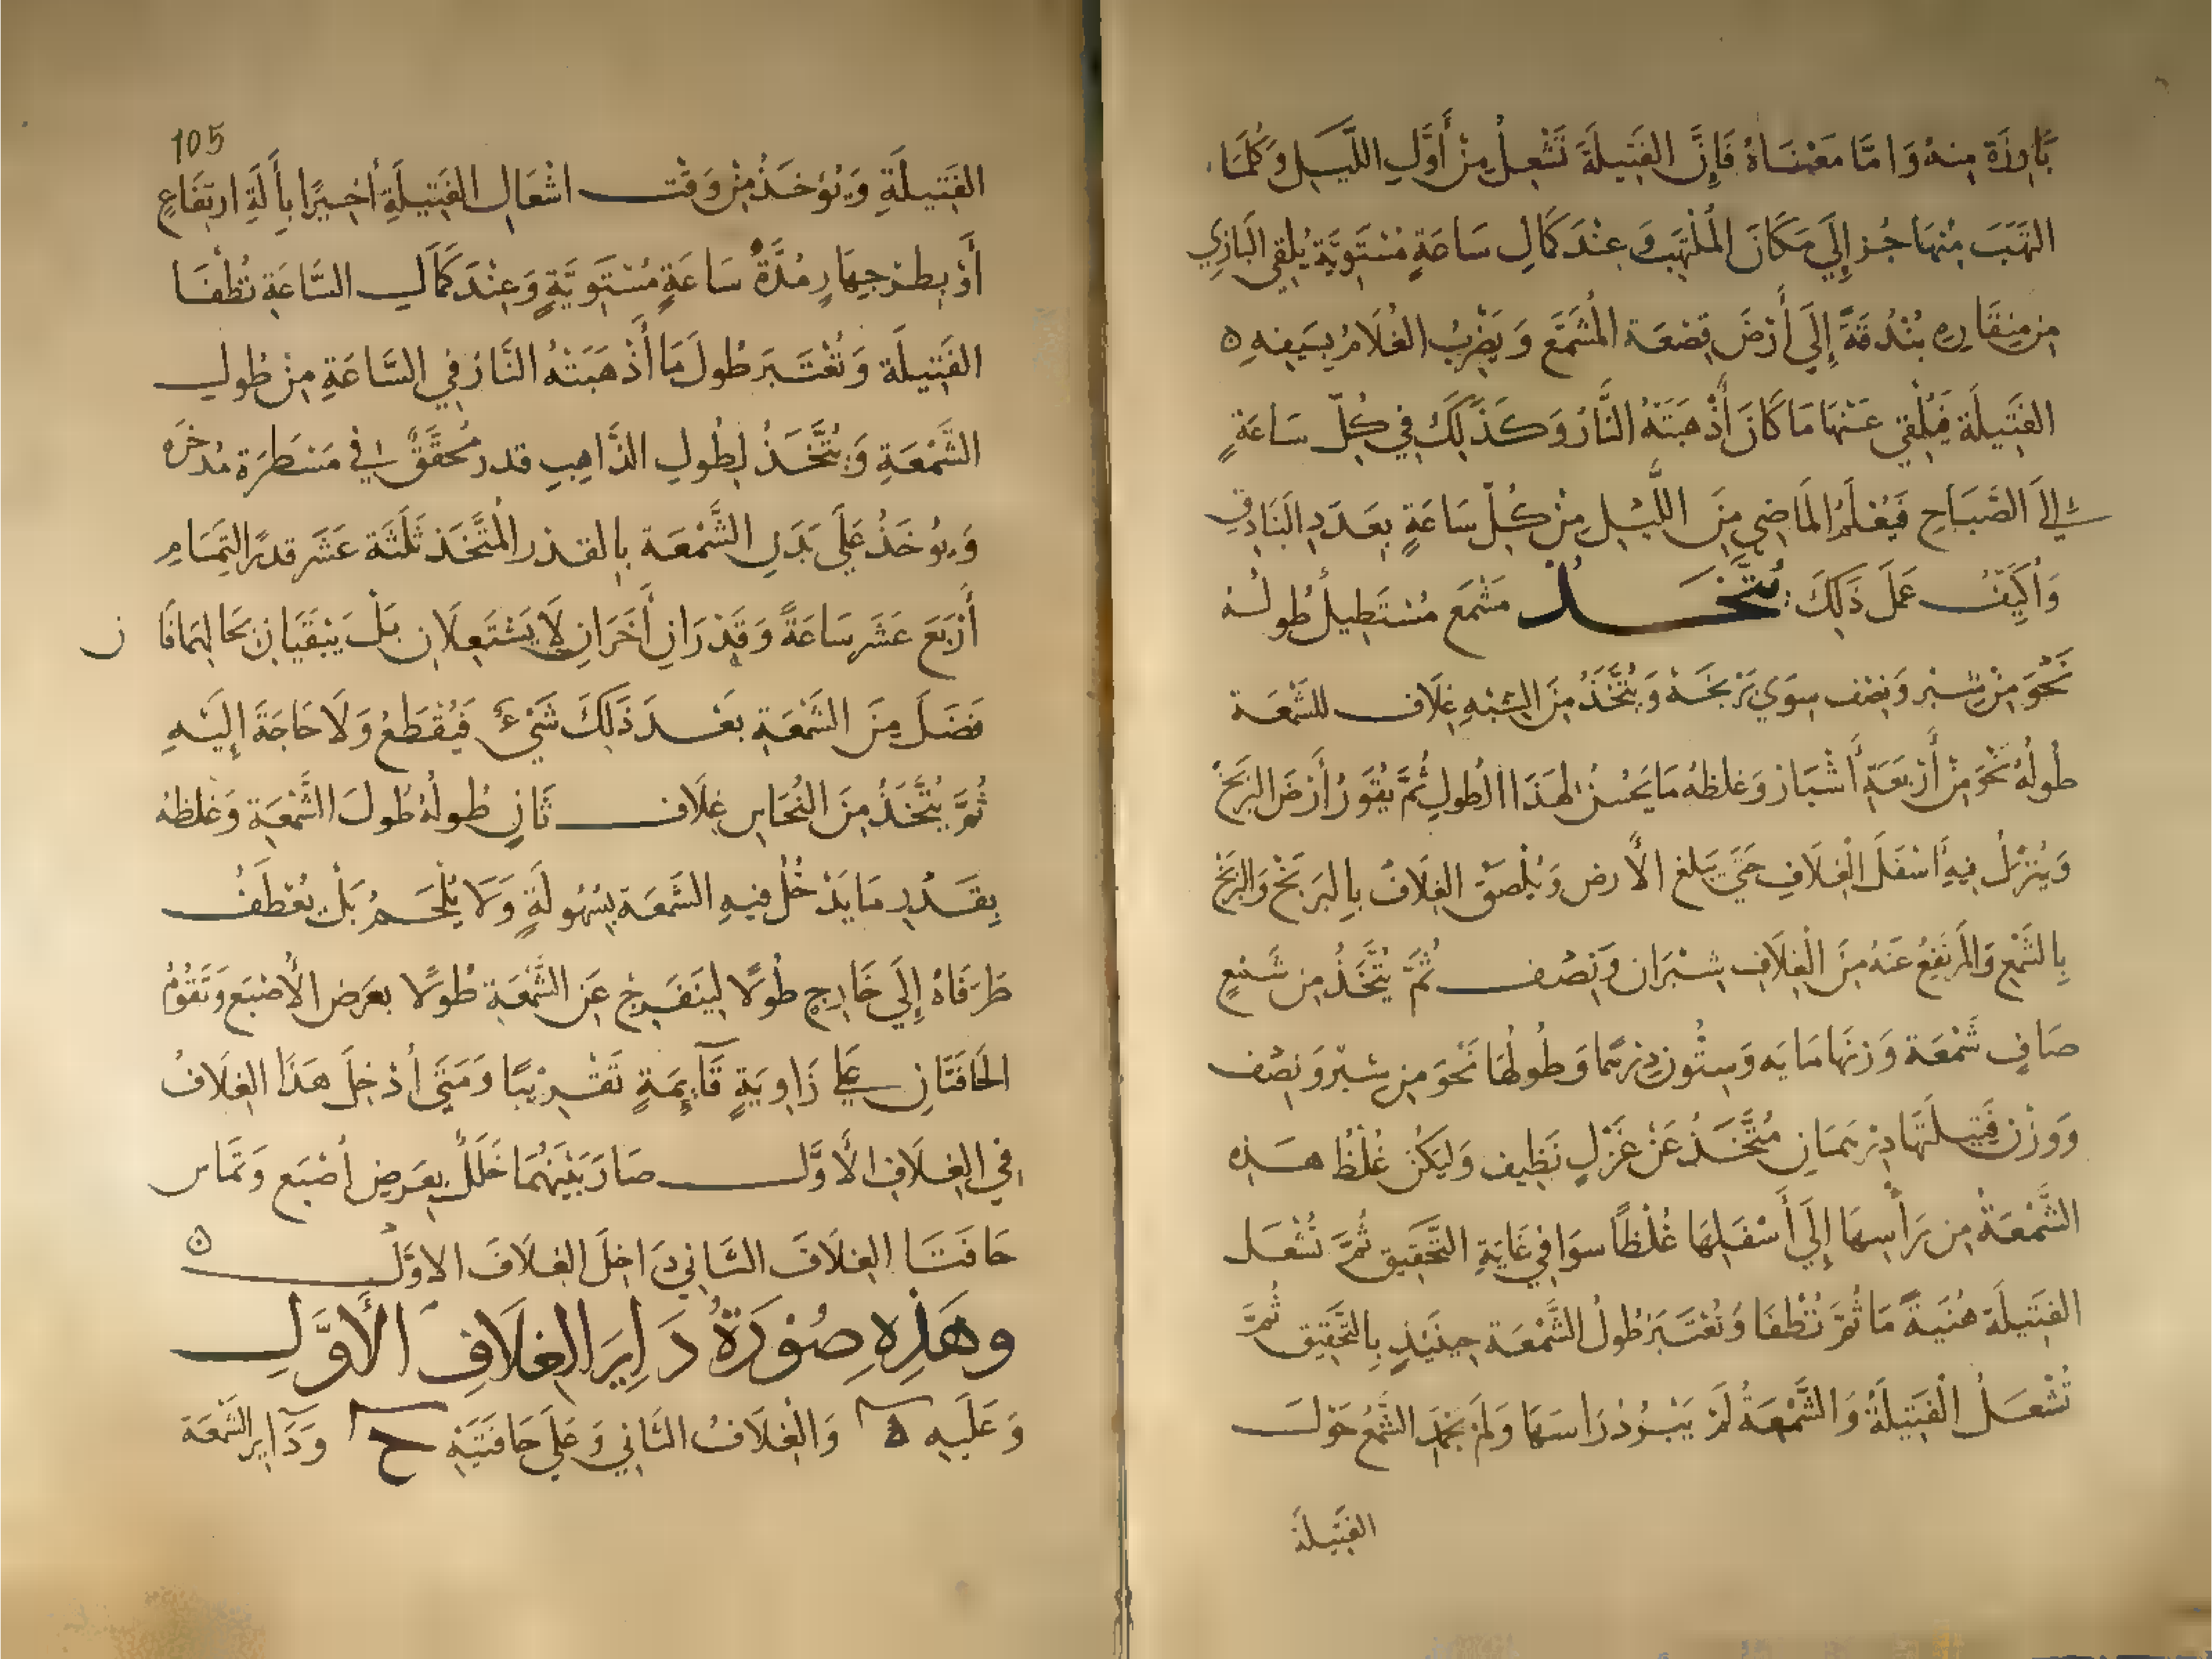 بَارزَة مِنهُ وَامَّا مَعْنَاهُ فَإِنَّ الفَتِيلَةَ تَشْعِلُ مِنْ أَوَّلِ اللَّيَلِ وَكُلَّمَا
التَهَبَ مِنْهَا جُز إِلَي مَكَانَ المُلْتَهِبَ وَعِنْدَ كَمَالِ سَاعَةٍ مُسْتَوِيَّةٍ يُلقِي البَازِي
مِن مِنقَارِهِ بُنْدُقَةً إِلَي أَرْضَ قَصْعَة المُشَمَّع وَيَضْرِبُ الغُلَامُ بِسَيفِهِ ه
الفَتِيلَة فَيُلْقِي عَنْهَا مَا كَانَ أَذْهَبَتْهُ النَّارُ وَكَذَلِكَ فِي كُلّ سَاعَةٍ
إِلَي الصَّبَاحِ فَيُعْلَمُ المَاضِي مِنَ اللَّيْلِ مِنْ كُلّ سَاعَةٍ بِعَدَدِ البَنَادِقِ
وَأَكَيّفُ عَمَلَ ذَلِكَ يُتَّخَذُ مَشْمَع مُسْتَطِيلُ طُولُهُ
نَحْوَ مِنْ شِبْر وَنِصْف سِوَي بَرْبَخَهُ وَيُتَّخَذُ مِنَ الشَبْهِ غِلَاف للشَّمْعَة
طُولُهُ نَحْوَ مِنْ أَرْبَعَةِ أَشْبَار وَغلظهُ مَا يَحْسُنُ لِهَذَا الطُولِ ثُمَّ يُقَوَّرُ أَرْضَ البَرَبَخْ
وَيُنْزَلُ فِيهِ اسْفَلَ الْغِلَافِ حَتَّي يَبلغ الأَرض وَيُلْصَقُ الغِلَافُ بِالبَربَخْ وَالبَرْبَخْ
بِالشَّمْعِ وَالمُرْتَفِعُ عَنهُ مِنَ الْغِلَافِ شِبْرَان وَنِصْف ثُمَّ يُتَّخَذُ مِن شَمْعٍ
صَافٍ شَمْعَة وَزنهَا مَايَه وَسِتُّون دِرْهَمًا وَطُولُهَا نَحْوَ مِن شِبْرٍ وَنِصْف
وَوَزْن فَتِيلَتَهَا دِرْهَمَان مُتَّخَذُ عَنْ غَزْلٍ نَظِيف وَلِيَكُنْ غُلْظُ هَذِهِ
الشَّمْعَةُ مِن رَأْسِهَا إِلَي أَسْفَلِهَا غُلْظًا سوَا فِي غَايَةِ التَّحْقِيق ثُمَّ تُشْعَل
الفَتِيلَة هُنَيَةً مَا ثُمَّ تُطْفَا وَتُعْتَبَرْ طُولُ الشَّمْعَة حِينَئِذٍ بِالتَّحْقِيق ثُمَّ
تُشْعَلُ الْفَتِيلَةُ وَالشَّمْعَةُ لَمْ يَبْرُدْ رَاسَهَا وَلَمْ يَجْمُدَ الشَّمْعُ حَوْلَ
الفَتِيلَةَ
105
الفَتِيلَةِ وَيُؤخَذُ مِنْ وَقْت اشْعَالِ الفَتِيلَةِ أَخِيرًا بِأَلَةِ ارتِفَاعٍ
أَوْ بِطرْجِهَارِ مُدَّةُ سَاعَةٍ مُسْتَوِيَّةٍ وَعِنْدَ كَمَالِ السَّاعَةِ تُطْفَا
الفَتِيلَة وَتُعْتَبَرَ طُولَ مَا أَذْهَبَتْهُ النَّارُ فِي السَّاعَةِ مِنْ طُولِ
الشَّمْعَةِ وَيُتَّخَذُ لِطُولِ الذَّاهِبِ قدر مُحَقَّقُ فِي مَسْطَرَة مُدخَرَه
وَيُوخَذُ عَلَي بَدَلِ الشَّمْعَة بِالقدْر المُتَّخَذ ثَلَثَة عَشَر قَدرًا لتَِمَامِ
أَرْبَع عَشَر سَاعَةً وَقَدْرَانِ أَخَرَانِ لَا يَشْتَعِلَانِ بَلْ يَبْقَيَانِ بحَالِهِمَا فَا ن
فَضَلَ مِنَ الشَّمْعَةِ بَعْدَ ذَلِكَ شَيْءٌ فَيُقْطَعُ وَلَا حَاجَةَ إِلَيْهِ
ثُمَّ يُتَّخَذُ مِنَ النُحَاسِ غِلَاف ثَانٍ طُولهُ طُولَ الشَّمْعَةِ وَغلظهُ
بِقَدْرِ مَا يَدْخُلُ فِيهِ الشَّمعَة بِسُهُولَةٍ وَلَا يُلْحَمُ بَلْ يُعْطَفُ
طَرَفَاهُ إِلَي خَارِجٍ طُولًا لِيَنفَرِجْ عَن الشَّمْعَةِ طُولًا بعَرض الأُصْبَع وَتَقُوْمُ
الحَافَتَانِ عَلَي زَاوِيَةٍ قَآيِمَةٍ تَقْرِيبًا وَمَتَي أُدْخِلَ هَذَا الغِلَافُ
فِي الغِلَافِ الأَوَّل صَارَ بَيْنَهُمَا خَلَلُ بِعَرضِ أُصْبَع وَتَمَاس
حَافَتَا الغِلَافَ الثَانِي دَاخِلَ الغِلَافَ الاوَّل ه
وهَذِهِ صُوْرَةُ دَايِرَ الغِلَافِ الأَوَّلِ
وَعَلَيهِ ه وَالْغِلَافُ الثَانِي وَعَلَي حَافَتَيْهِ ح وَدَايِر الشَّمْعَة